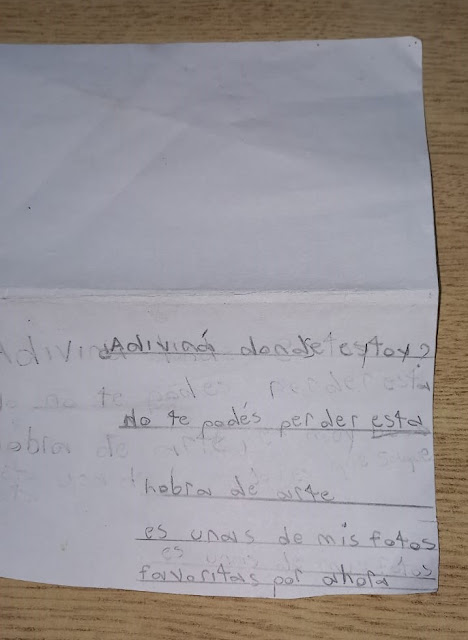 Adiviná donde estoy?
No te podés perder esta
hobra de arte
es unas de mis fotos
favoritas por ahora